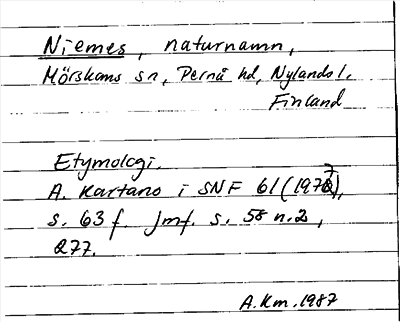 Niemes, naturnamn,
Mörskoms sn, Pernå hd, Nylands l,
Finland
Etymologi.
A. Kartano i SNF 61 (1972),
s. 63 f. Jmf. s. 58 n. 2,
277.
A.Km.1987